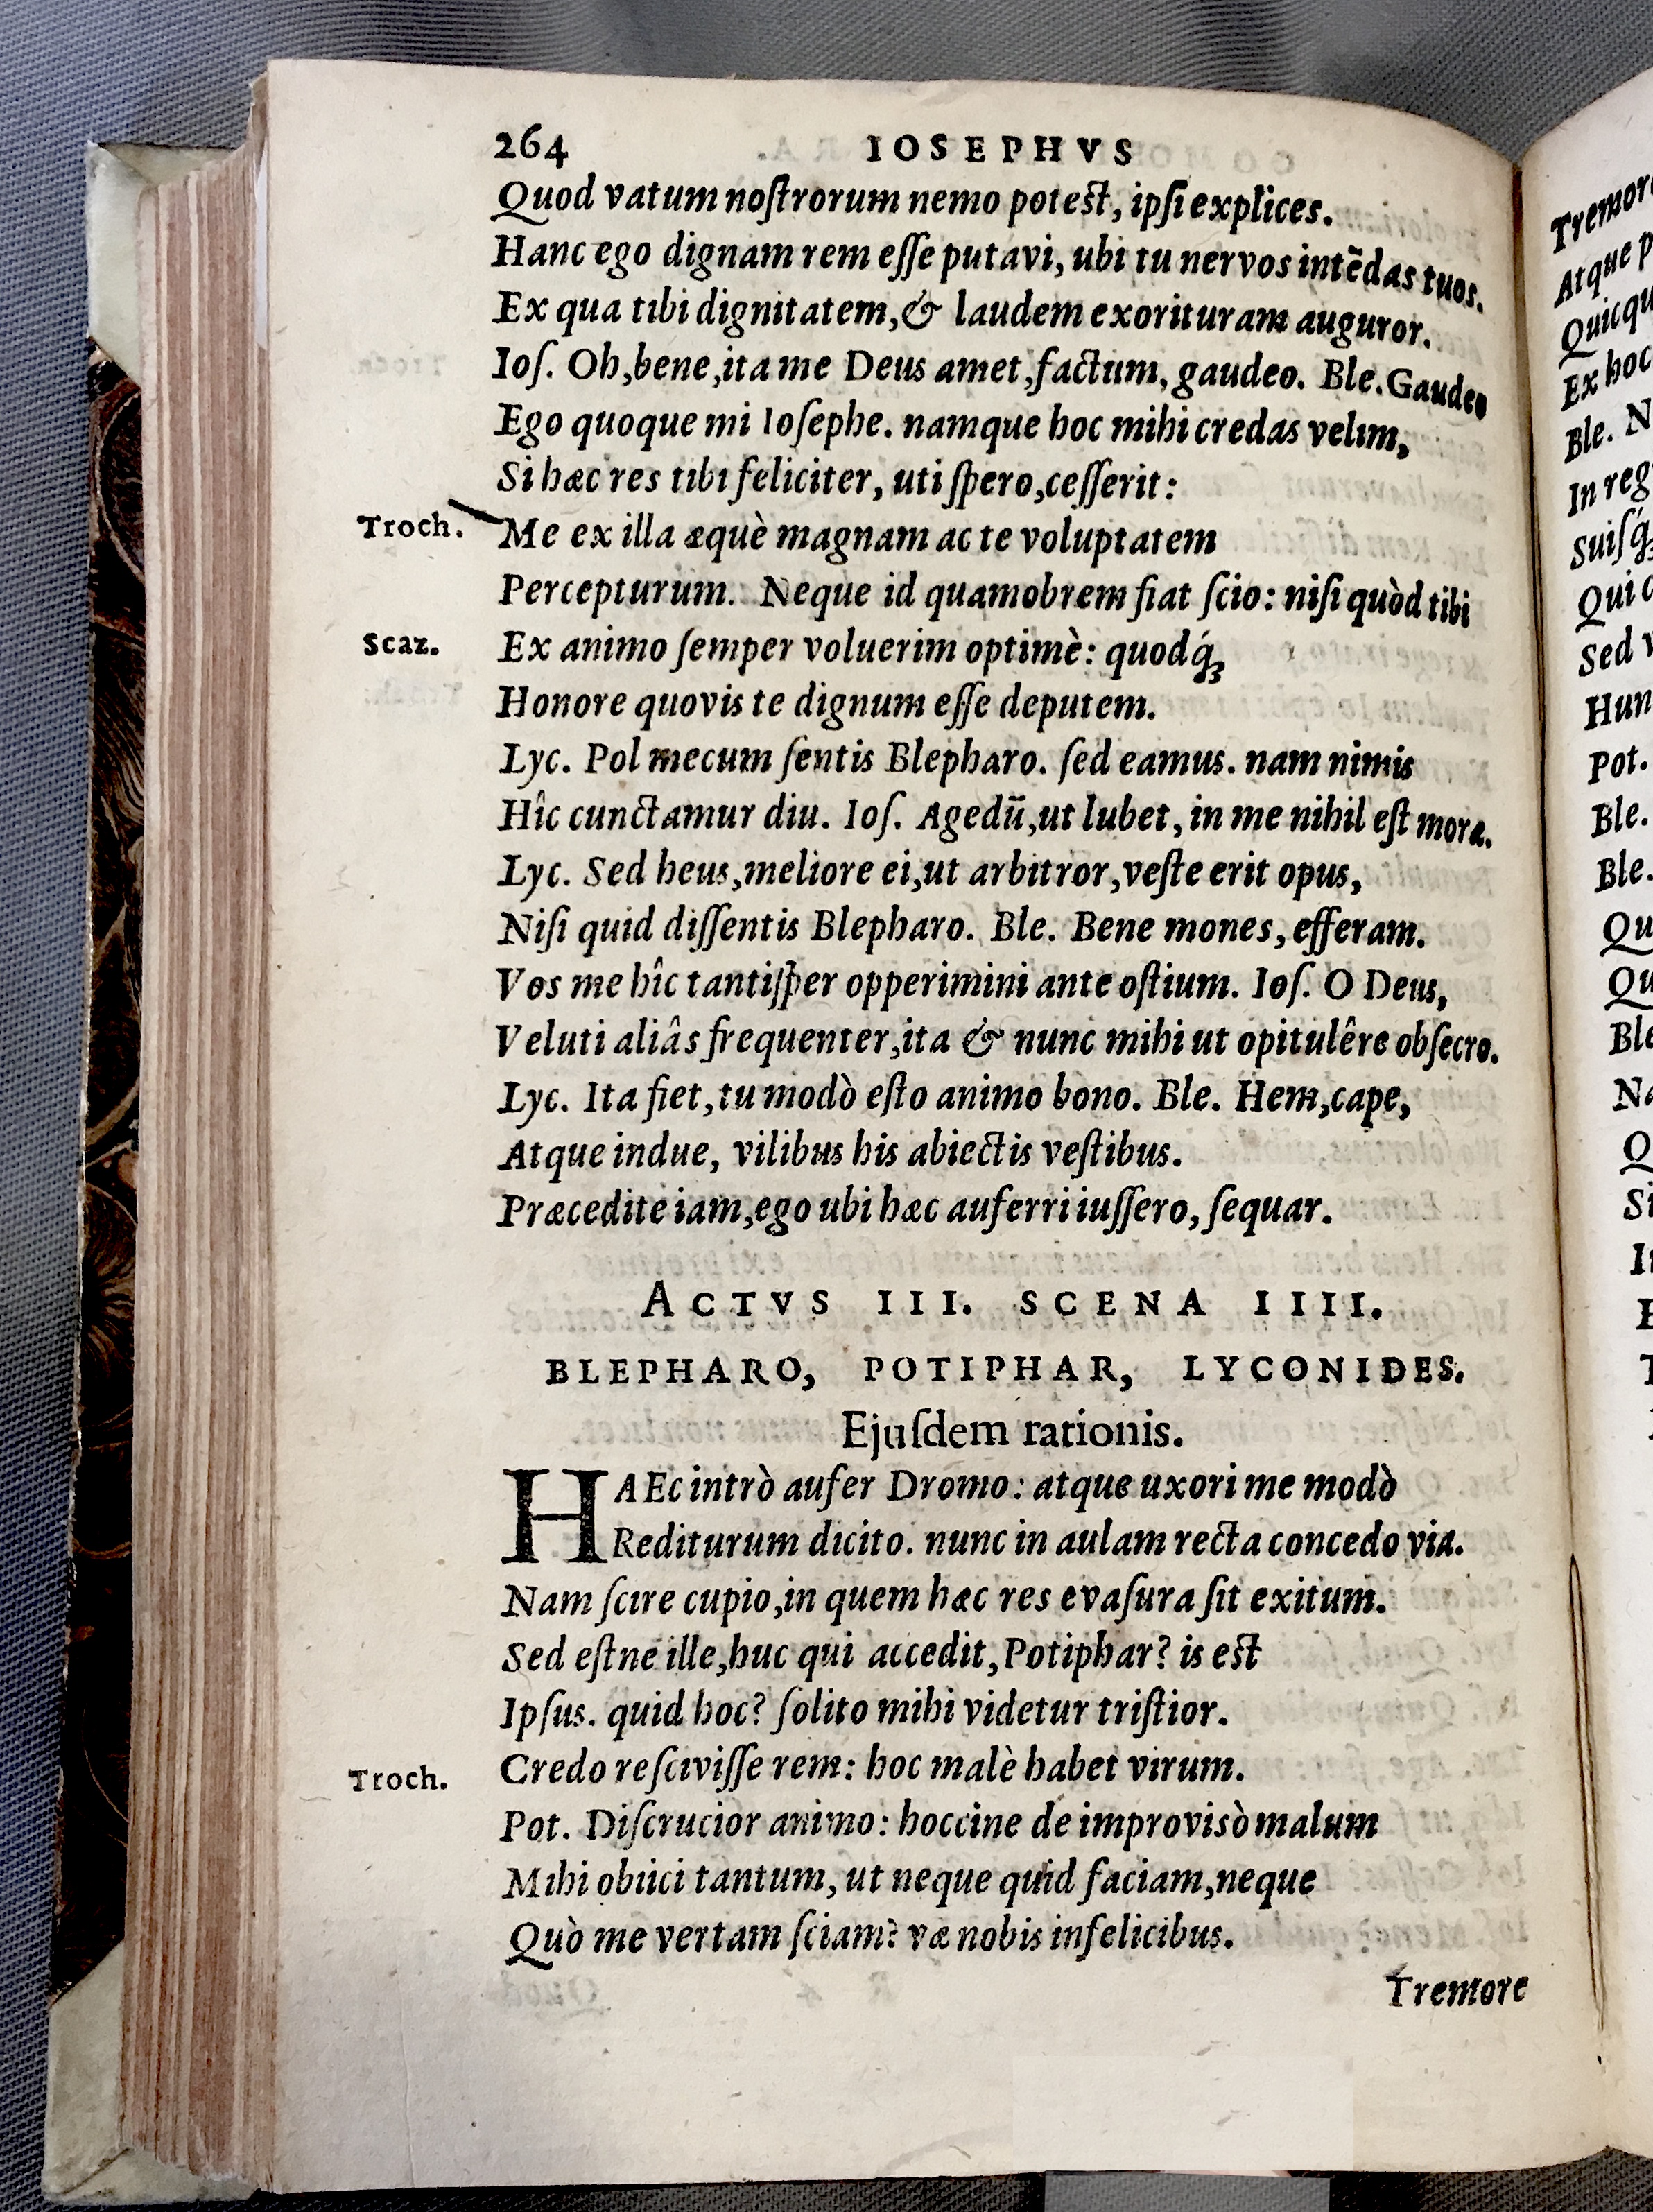 264 IOSEPHVS
Quod vatum noſtrorum nemo poteſt, ipſi explices.
Hanc ego dignam rem eſſe putavi, ubi tu nervos intẽdas tuos.
Ex qua tibi dignitatem, & laudem exorituram auguror.
Ioſ. Oh, bene, ita me Deus amet, factum, gaudeo. Ble. Gaudeo
Ego quoque mi Ioſephe. namque hoc mihi credas velim,
Si hæc res tibi feliciter, uti ſpero, ceſſerit:
Troch. Me ex illa æquè magnam ac te voluptatem
Percepturum. Neque id quamobrem fiat ſcio: niſi quòd tibi
Scaz. Ex animo ſemper voluerim optimè: quodq́ꝫ
Honore quovis te dignum eſſe deputem.
Lyc. Pol mecum ſentis Blepharo. ſed eamus. nam nimis
Hîc cunctamur diu. Ioſ. Agedū, ut lubet, in me nihil eſt moræ.
Lyc. Sed heus, meliore ei, ut arbitror, veſte erit opus,
Niſi quid diſſentis Blepharo. Ble. Bene mones, efferam.
Vos me hîc tantiſper opperimini ante oſtium. Ioſ. O Deus,
Veluti aliâs frequenter, ita & nunc mihi ut opitulêre obſecro.
Lyc. Ita fiet, tu modò eſto animo bono. Ble. Hem, cape,
Atque indue, vilibus his abiectis veſtibus.
Præcedite iam, ego ubi hæc auferri iuſſero, ſequar.
ACTVS III. SCENA IIII.
BLEPHARO, POTIPHAR, LYCONIDES.
Ejuſdem rationis.
HAEc intrò aufer Dromo: atque uxori me modò
Rediturum dicito. nunc in aulam recta concedo via.
Nam ſcire cupio, in quem hæc res evaſura ſit exitum.
Sed eſtne ille, huc qui accedit, Potiphar? is eſt
Ipſus. quid hoc? ſolito mihi videtur triſtior.
Troch. Credo reſciviſſe rem: hoc malè habet virum.
Pot. Diſcrucior animo: hoccine de improvisò malum
Mihi obiici tantum, ut neque quid faciam, neque
Quò me vertam ſciam? væ nobis infelicibus.
Tremore
Atque
Ex hoc
Ble.
Pot.
Ble.
Ble.